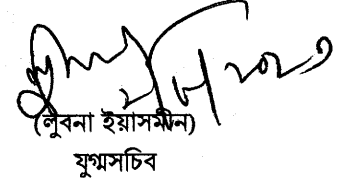 (লুবনা ইয়াসমীন)
যুগ্মসচিব